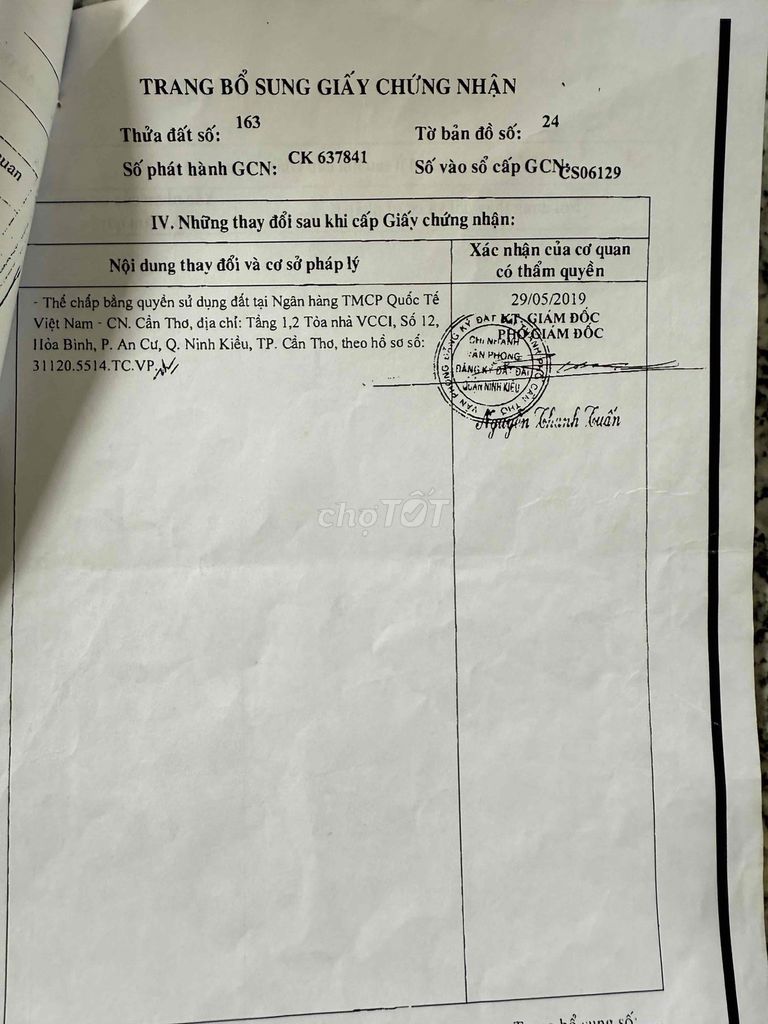 TRANG BỔ SUNG GIẤY CHỨNG NHẬN
Thửa đất số: 163
Tờ bản đồ số: 24
Số phát hành GCN: CK 637841
Số vào sổ cấp GCN: CS06129
IV. Những thay đổi sau khi cấp Giấy chứng nhận:
Nội dung thay đổi và cơ sở pháp lý
Xác nhận của cơ quan
có thẩm quyền
- Thế chấp bằng quyền sử dụng đất tại Ngân hàng TMCP Quốc Tế
Việt Nam - CN. Cần Thơ, địa chỉ: Tầng 1,2 Tòa nhà VCCI, Số 12,
Hòa Bình, P. An Cư, Q. Ninh Kiều, TP. Cần Thơ, theo hồ sơ số:
31120.5514.TC.VP.
29/05/2019
KT. GIÁM ĐỐC
PHÓ GIÁM ĐỐC
VĂN PHÒNG ĐĂNG KÝ ĐẤT ĐAI THÀNH PHỐ CẦN THƠ
CHI NHÁNH
VĂN PHÒNG
ĐĂNG KÝ ĐẤT ĐAI
QUẬN NINH KIỀU
Nguyễn Thanh Tuấn
chợTỐT
uan
Trang bổ sung số: